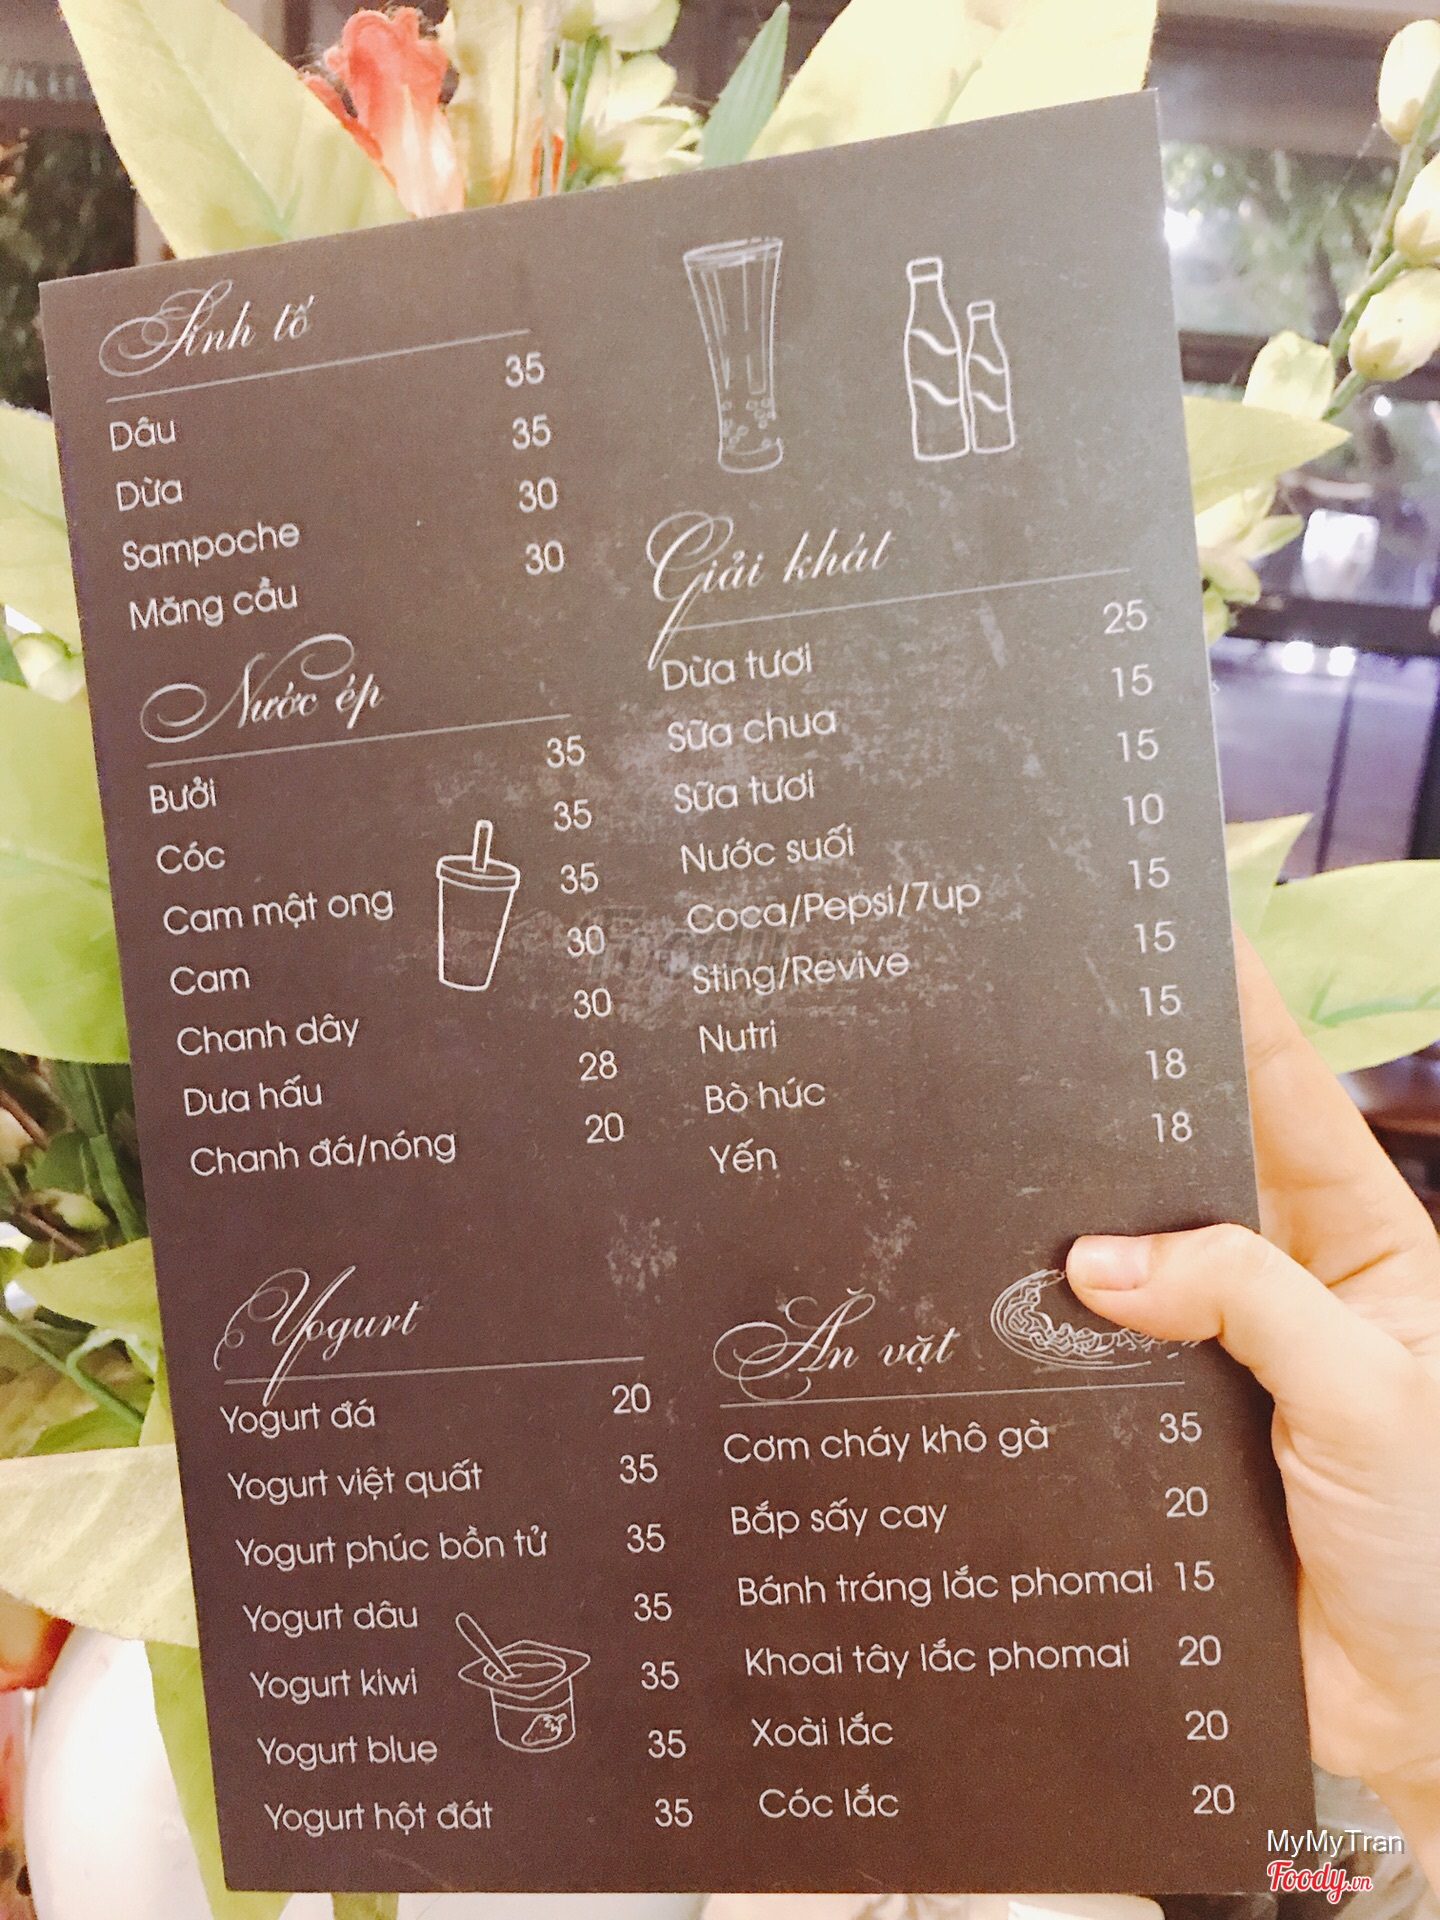 Sinh tố
Dâu 35
Dừa 35
Sampoche 30
Măng cầu 30
Nước ép
Bưởi 35
Cóc 35
Cam mật ong 35
Cam 30
Chanh dây 30
Dưa hấu 28
Chanh đá/nóng 20
Yogurt
Yogurt đá 20
Yogurt việt quất 35
Yogurt phúc bồn tử 35
Yogurt dâu 35
Yogurt kiwi 35
Yogurt blue 35
Yogurt hột đát 35
Giải khát
Dừa tươi 25
Sữa chua 15
Sữa tươi 15
Nước suối 10
Coca/Pepsi/7up 15
Sting/Revive 15
Nutri 15
Bò húc 18
Yến 18
Ăn vặt
Cơm cháy khô gà 35
Bắp sấy cay 20
Bánh tráng lắc phomai 15
Khoai tây lắc phomai 20
Xoài lắc 20
Cóc lắc 20
Foody
MyMyTran
Foody.vn